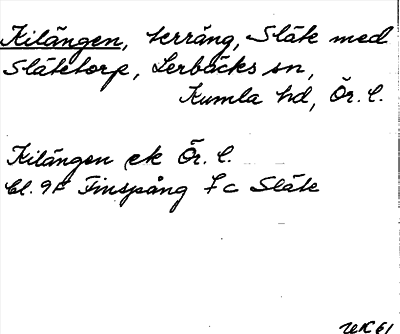 Kilängen, terräng, Släte med
Slätetorp, Lerbäcks sn,
Kumla hd, Ör. l.
Kilängen ek Ör. l.
Bl. 9F Finspång f c Släte
WK 61